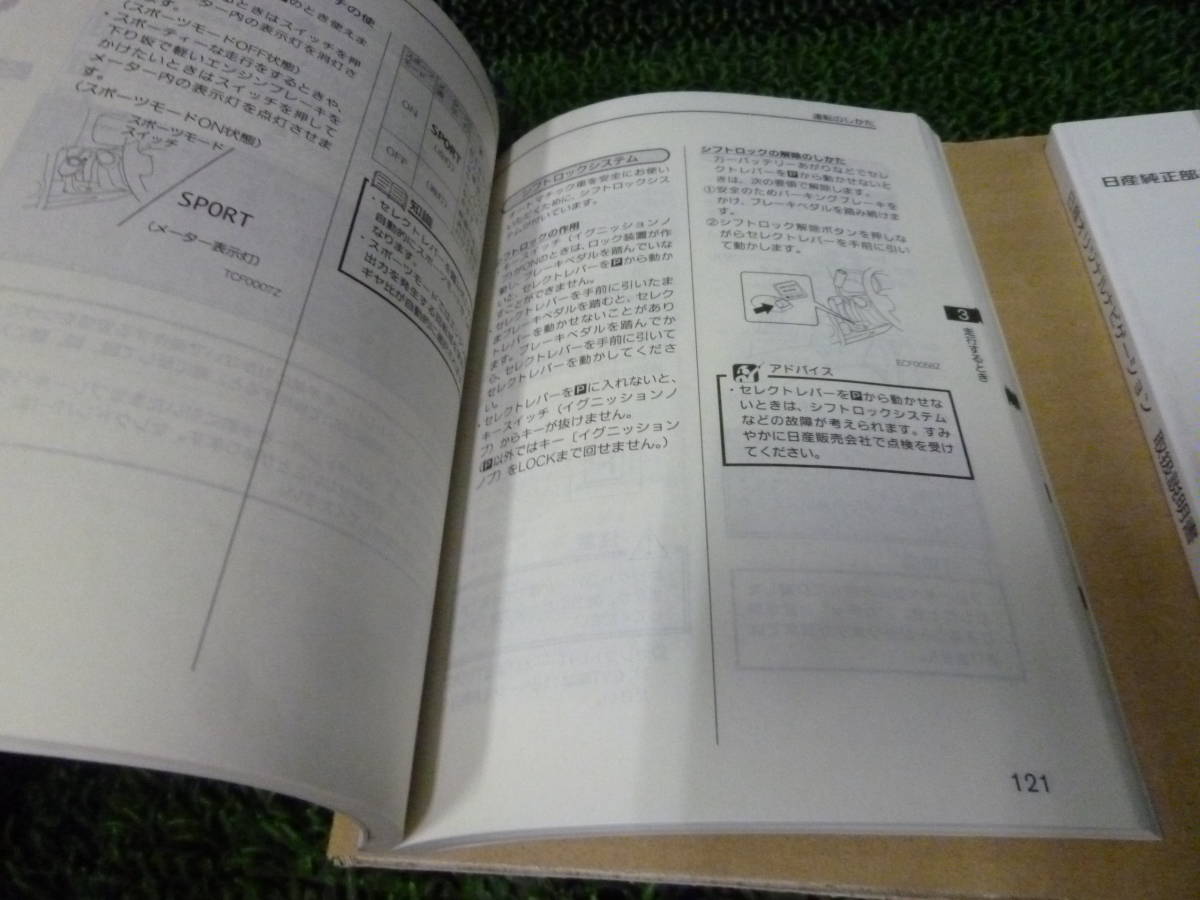 のとき使えま
ときはスイッチを押
ーター内の表示灯を消灯さ
ます。
(スポーツモードOFF状態)
・スポーティーな走行をするときや、
下り坂で軽いエンジンブレーキを
かけたいときはスイッチを押して
メーター内の表示灯を点灯させま
す。
(スポーツモードON状態)
スポーツモード
スイッチ
SPORT
(メーター表示灯)
TCF0007Z
ON
SPORT
(点灯)
OFF
(消灯)
知識
・セレクトレバーを
自動的にスポー
なります。
・スポーツモード
出力を発生する
ギヤ比が自動的に
運転のしかた
シフトロックシステム
オートマチック車を安全にお使い
いただくために、シフトロックシス
テムが付いています。
シフトロックの作用
キースイッチ(イグニッションノ
ブ)がONのときは、ロック装置が作
動し、ブレーキペダルを踏んでいな
いと、セレクトレバーをPから動か
すことができません。
・セレクトレバーを手前に引いたま
まブレーキペダルを踏むと、セレク
トレバーを動かせないことがあり
ます。ブレーキペダルを踏んでか
ら、セレクトレバーを手前に引いて
セレクトレバーを動かしてくださ
い。
・セレクトレバーをPに入れないと、
キースイッチ(イグニッションノ
ブ)からキーが抜けません。
(P以外ではキー[イグニッション
ノブ]をLOCKまで回せません。)
シフトロックの解除のしかた
カーバッテリーあがりなどでセレ
クトレバーをPから動かせないと
きは、次の要領で解除します。
①安全のためパーキングブレーキを
かけ、ブレーキペダルを踏み続けま
す。
②シフトロック解除ボタンを押しな
がらセレクトレバーを手前に引い
て動かします。
ECF0058Z
アドバイス
・セレクトレバーをPから動かせな
いときは、シフトロックシステム
などの故障が考えられます。すみ
やかに日産販売会社で点検を受け
てください。
3
走行するとき
121
日産純正部
日産オリジナルナビゲーション 取扱説明書